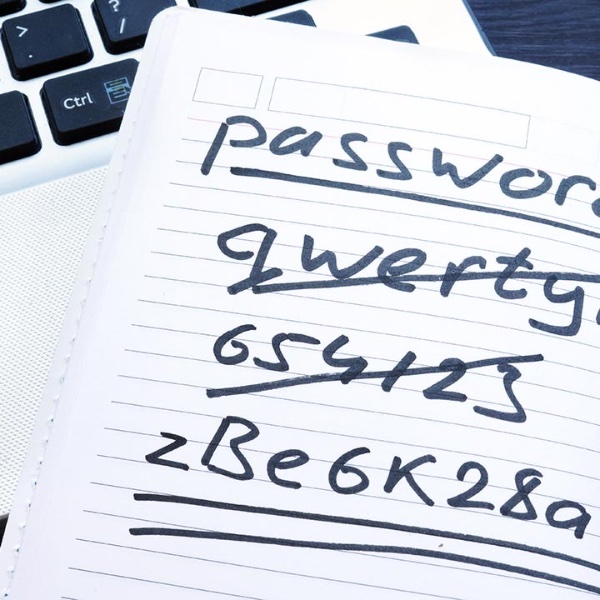 >
?
/
Ctrl
password
qwerty
654123
zBe6K28a